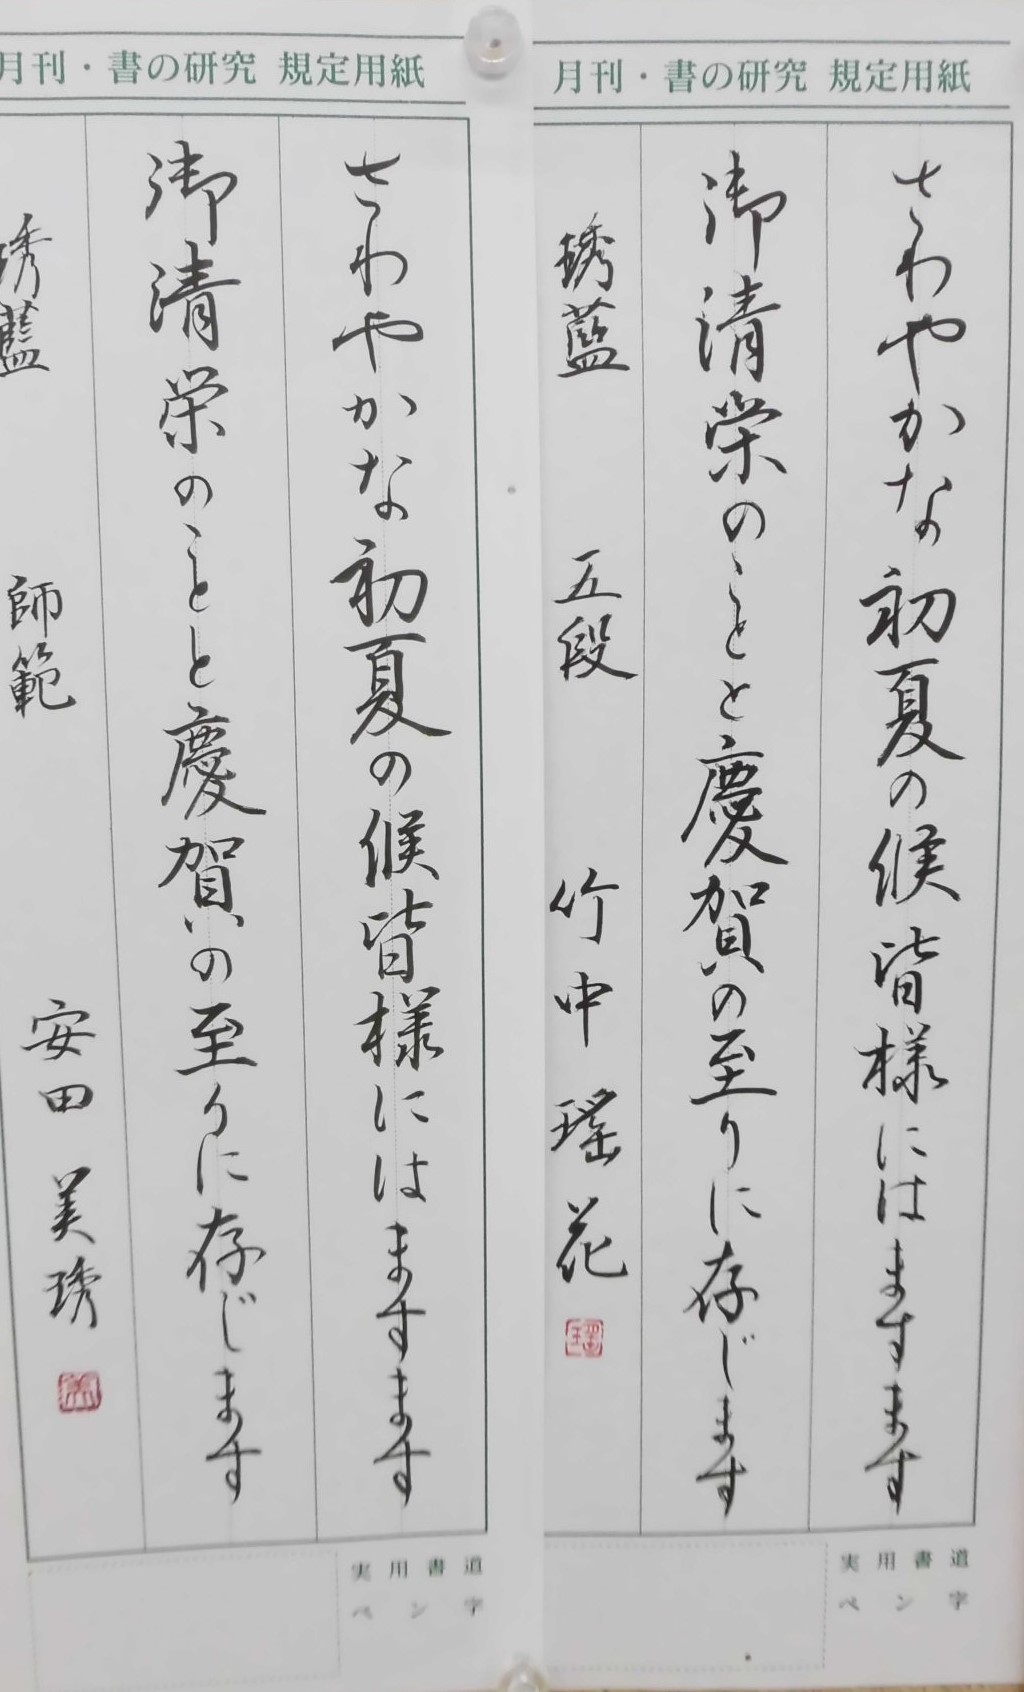 月刊・書の研究 規定用紙
さわやかな初夏の候皆様にはますます
御清栄のことと慶賀の至りに存じます
琇藍 五段 竹中 瑤花
実用書道
ペン字
月刊・書の研究 規定用紙
さわやかな初夏の候皆様にはますます
御清栄のことと慶賀の至りに存じます
琇藍 師範 安田 美琇
実用書道
ペン字